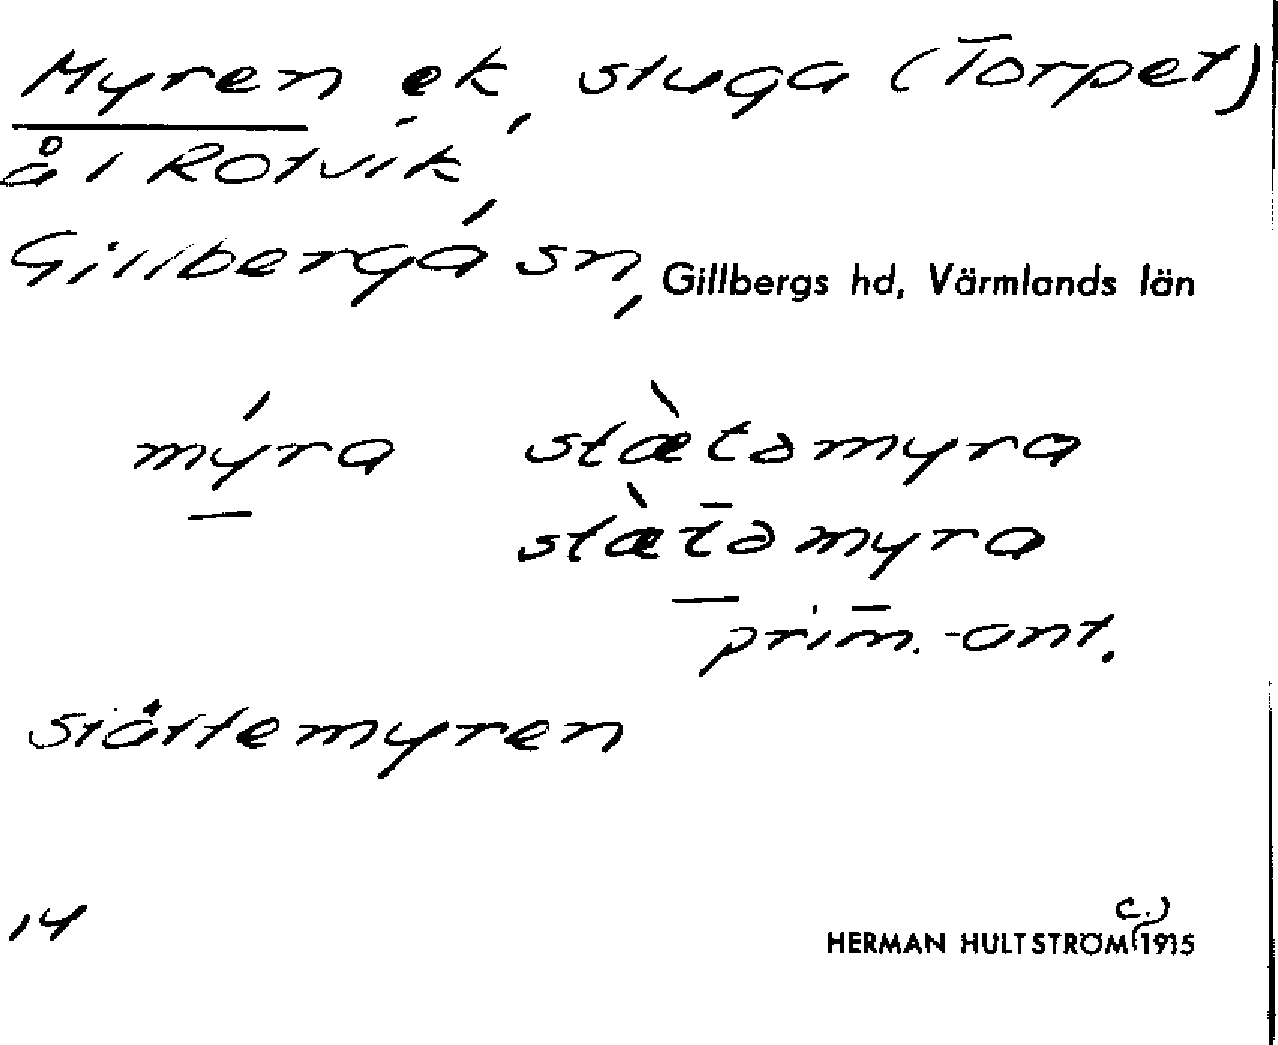 Myren ek, stuga (Torpet)
å i Rotvik,
Gillberga sn, Gillbergs hd, Värmlands län
mýra stæ̀tamyra
stæ̀t̄amyra
prim.-ant.
Ståttemyren
14
HERMAN HULTSTRÖM (c.) 1915